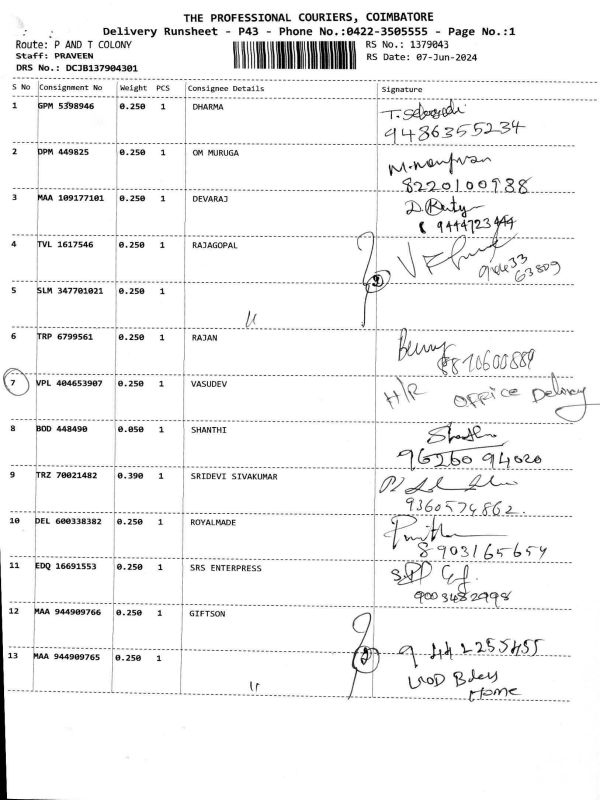 THE PROFESSIONAL COURIERS, COIMBATORE
Delivery Runsheet - P43 - Phone No.:0422-3505555 - Page No.:1
Route: P AND T COLONY RS No.: 1379043
Staff: PRAVEEN RS Date: 07-Jun-2024
DRS No.: DCJB137904301
S No Consignment No Weight PCS Consignee Details Signature
1 GPM 5398946 0.250 1 DHARMA
9486355234
2 DPM 449825 0.250 1 OM MURUGA
8220100938
3 MAA 109177101 0.250 1 DEVARAJ
9444723444
4 TVL 1617546 0.250 1 RAJAGOPAL
63809
5 SLM 347701021 0.250 1
6 TRP 6799561 0.250 1 RAJAN
8870600889
7 VPL 404653907 0.250 1 VASUDEV H/R OFFice Delivery
8 BOD 448490 0.050 1 SHANTHI
96260 94020
9 TRZ 70021482 0.390 1 SRIDEVI SIVAKUMAR
9360574862.
10 DEL 600338382 0.250 1 ROYALMADE
8903165654
11 EDQ 16691553 0.250 1 SRS ENTERPRESS
9003482998
12 MAA 944909766 0.250 1 GIFTSON
9442255455
13 MAA 944909765 0.250 1
Home